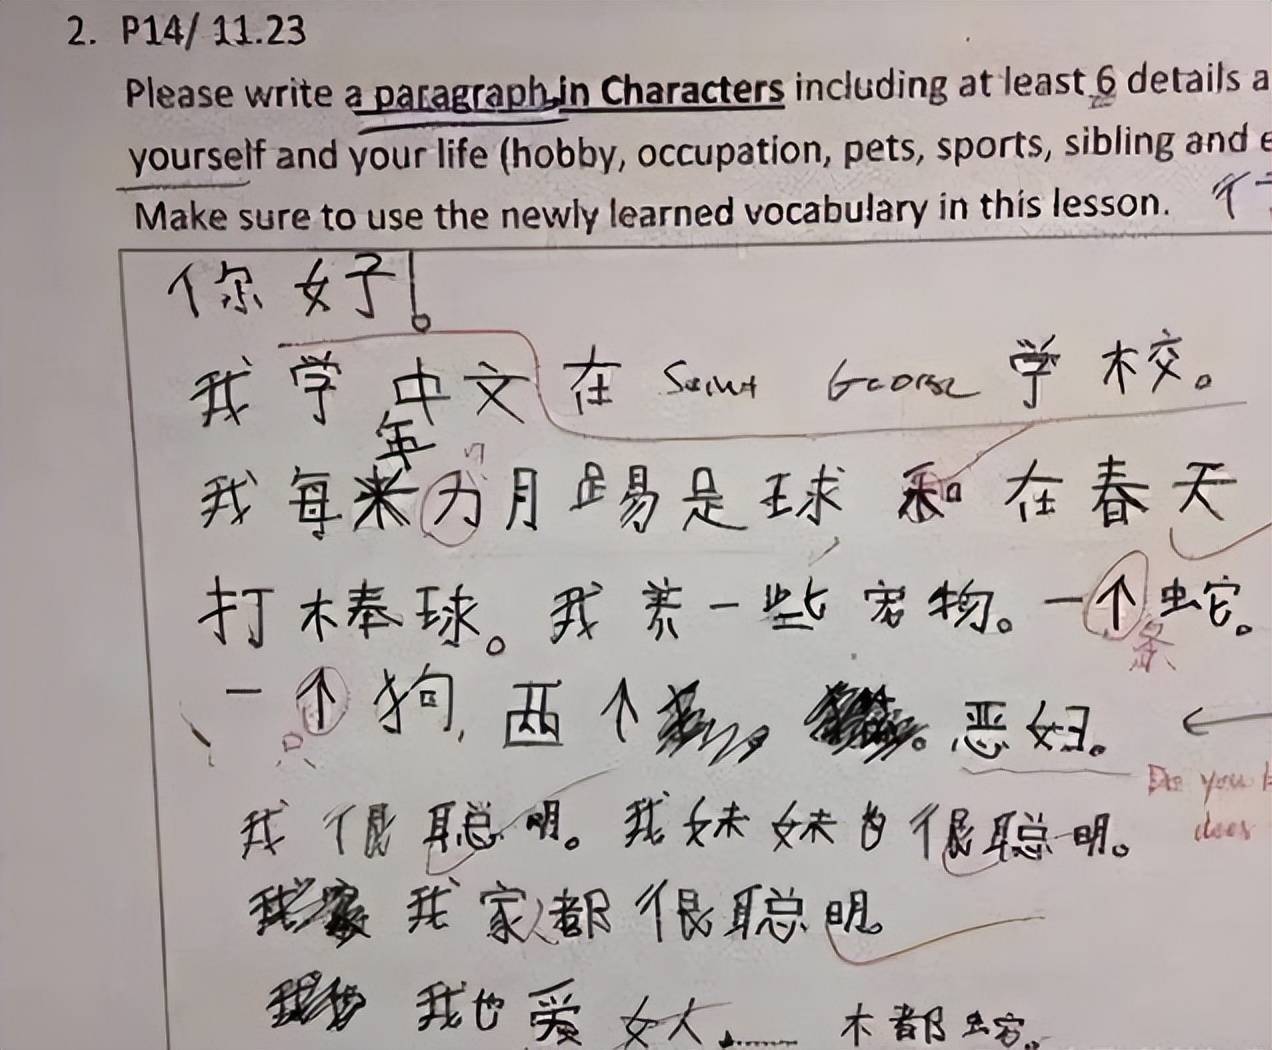 2. P14/ 11.23
Please write a paragraph in Characters including at least 6 details a
yourself and your life (hobby, occupation, pets, sports, sibling and e
Make sure to use the newly learned vocabulary in this lesson.
你好!
我学中文在 Saint George 学校。
年
我每米力月踢足球和在春天
打棒球。我养一些宠物。一个蛇。
条
一个狗,两个 。恶妇。
只
Do you
does
我很聪明。我妹妹也很聪明。
我家人都很聪明。
我也爱